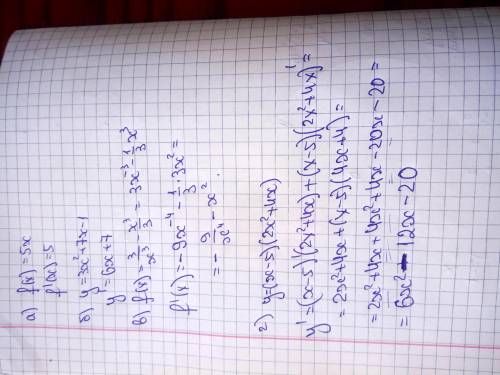 а) f(x) = 5x
f'(x) = 5
б) y = 3x² + 7x - 1
y' = 6x + 7
в) f(x) = 3/x³ - x³/3 = 3x⁻³ - 1/3 x³
f'(x) = -9x⁻⁴ - 1/3 · 3x² =
= - 9/x⁴ - x².
г) y = (x-5)(2x²+4x)
y' = (x-5)'(2x²+4x) + (x-5)(2x²+4x)' =
= 2x² + 4x + (x-5)(4x+4) =
= 2x² + 4x + 4x² + 4x - 20x - 20 =
= 6x² - 12x - 20